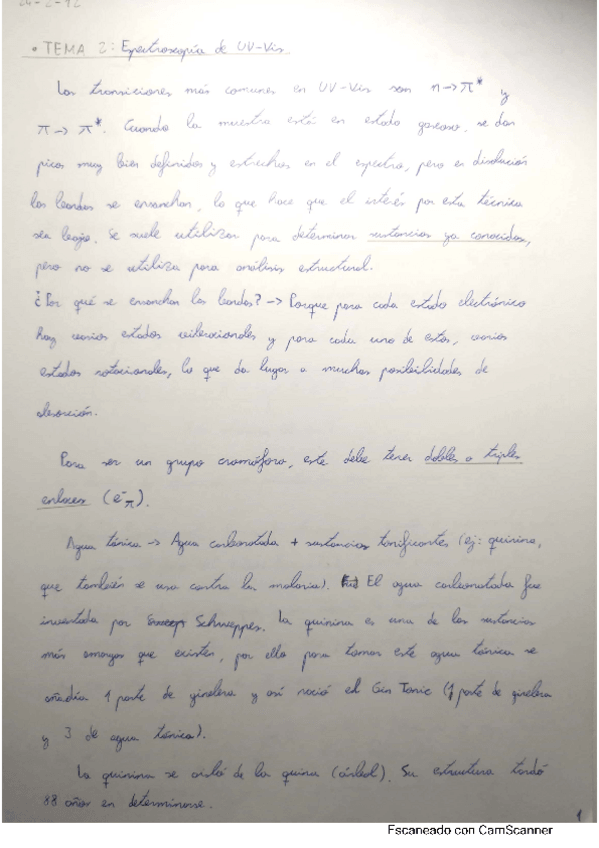 • TEMA 2: Espectroscopía de UV-Vis.
Las transiciones más comunes en UV-Vis son n→π* y
π→π*. Cuando la muestra está en estado gaseoso, se dan
picos muy bien definidos y estrechos en el espectro, pero en disolución
las bandas se ensanchan, lo que hace que el interés por esta técnica
sea bajo. Se suele utilizar para determinar sustancias ya conocidas,
pero no se utiliza para análisis estructural.
¿Por qué se ensanchan las bandas? → Porque para cada estado electrónico
hay varios estados vibracionales y para cada uno de estos, varios
estados rotacionales, lo que da lugar a muchas posibilidades de
absorción.
Para ser un grupo cromóforo, este debe tener dobles o triples
enlaces (e⁻π).
Agua tónica → Agua carbonatada + sustancias tonificantes (ej: quinina,
que también se usa contra la malaria). El agua carbonatada fue
inventada por Schweppes. La quinina es una de las sustancias
más amargas que existen, por ello para tomar este agua tónica se
añadía 1 parte de ginebra y así nació el Gin Tonic (1 parte de ginebra
y 3 de agua tónica).
La quinina se aisló de la quina (árbol). Su estructura tardó
88 años en determinarse.
1
Escaneado con CamScanner